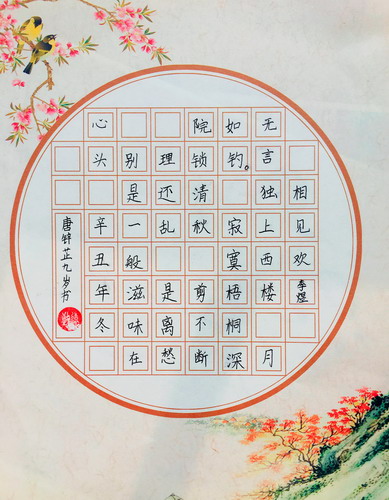 相见欢 李煜
无言独上西楼 月
如钩。 寂寞梧桐深
院锁清秋 剪不断
理还乱 是离愁
别是一般滋味在
心头 辛丑年冬
唐锌芷九岁书